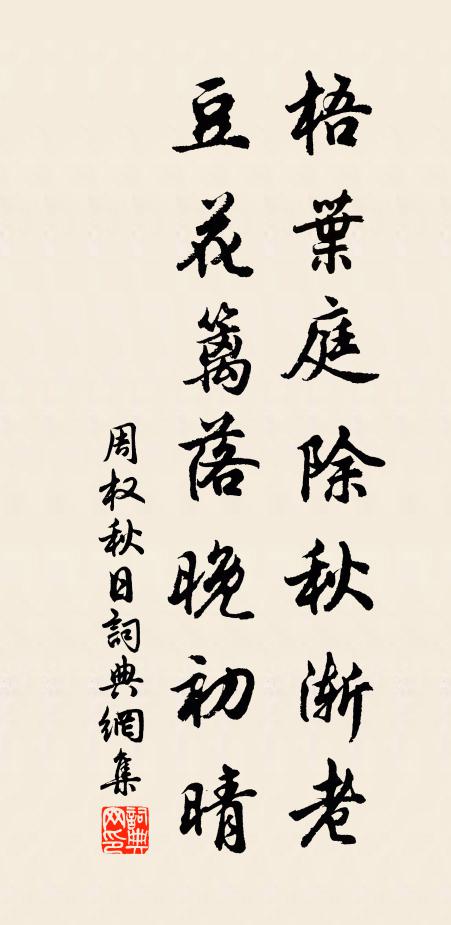 梧葉庭除秋渐老
豆花籬落晚初晴
周权秋日詞典網集
詞典网印